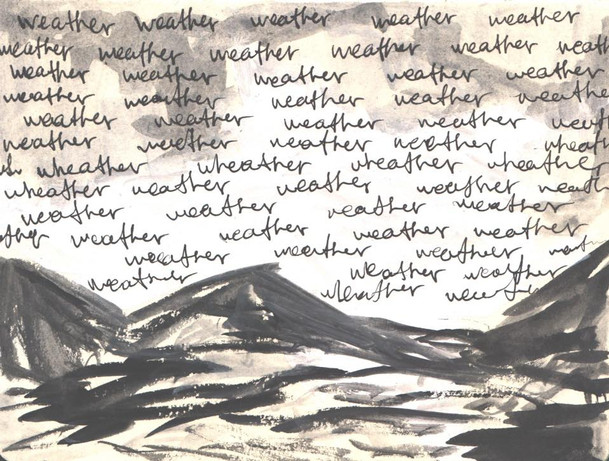 weather weather weather weather weather
weather weather weather weather weather
weather weather weather weather weather
weather weather weather weather weather
weather weather weather weather
weather weather weather weather
wheather wheather wheather wheathe
wheather weather weather weather
weather weather weather weather
weather weather weather weather
weather weather weather
weather weather weather
wheather